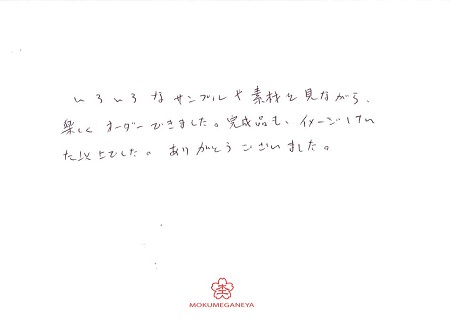 いろいろなサンプルや素材を見ながら、
楽しくオーダーできました。完成品も、イメージしてい
た以上でした。ありがとうございました。
MOKUMEGANEYA